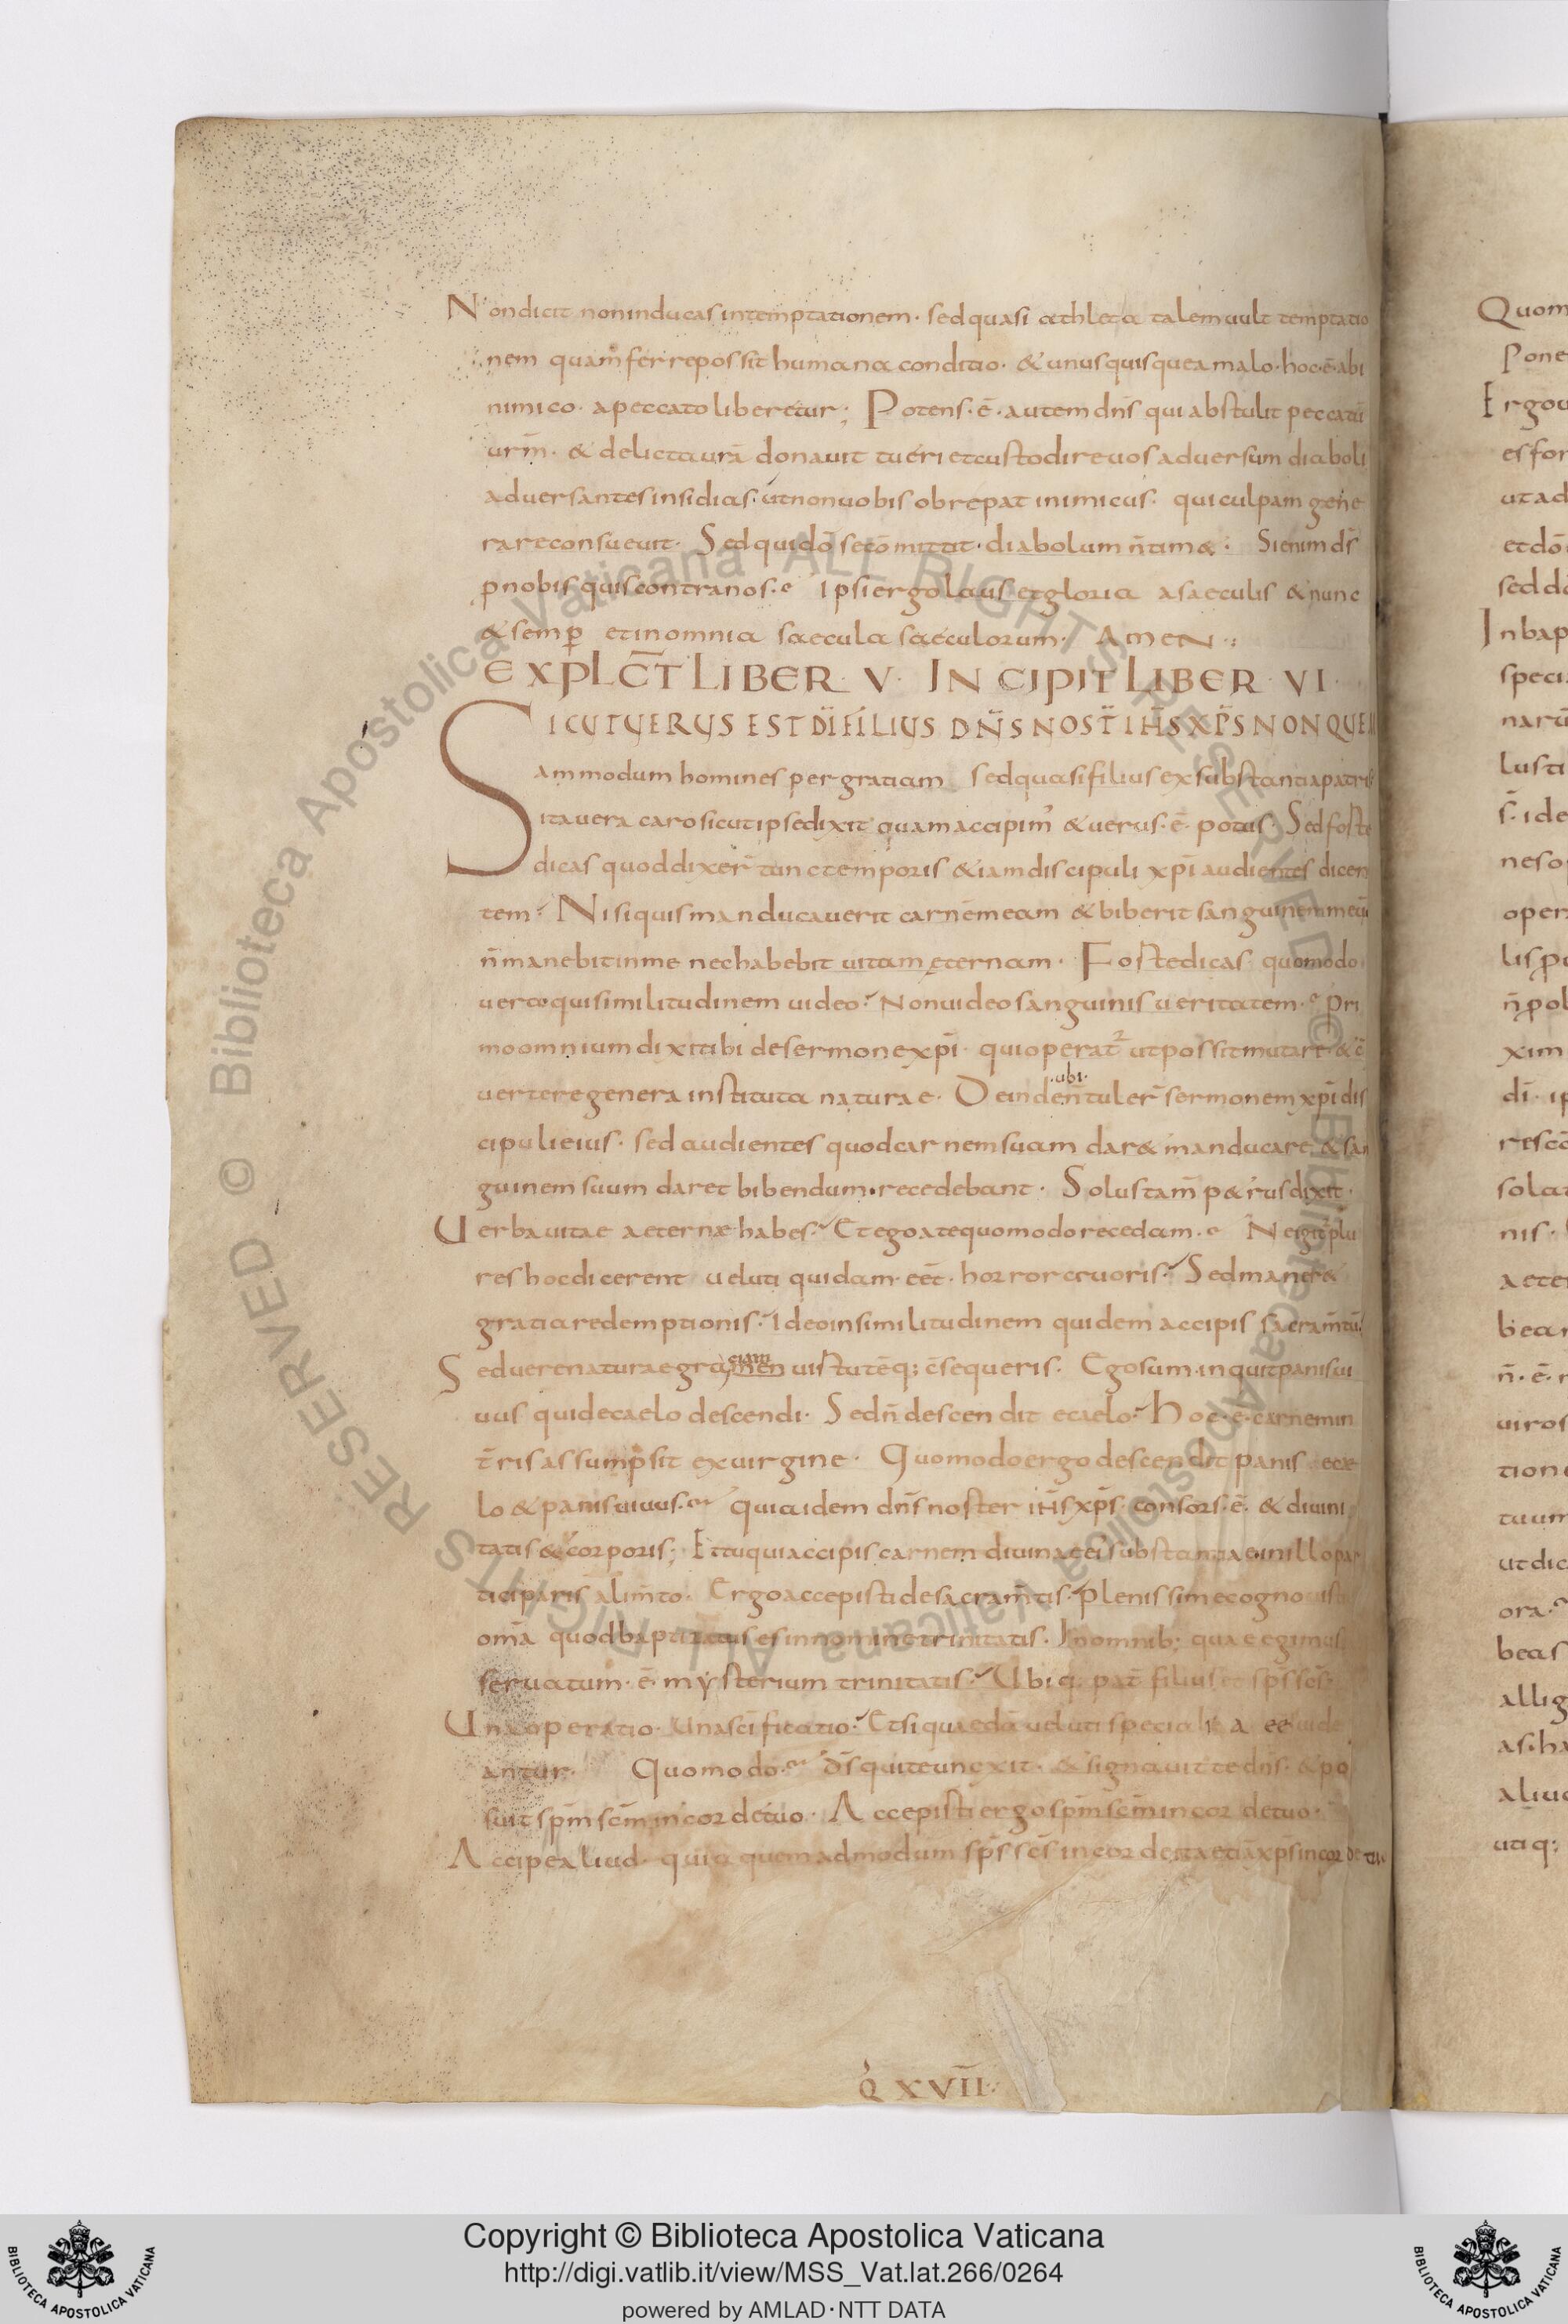 Non dicit non inducas in temptationem· sed quasi athleta talem uult temptatio
nem quam ferre possit humana conditio· & unusquisque a malo· hoc·ē· ab i
nimico· a peccato liberetur; Potens·ē·autem dn̄s qui abstulit peccatū
ur̄m· & delicta ur̄ā donauit tueri et custodire uos aduersum diaboli
aduersantes insidias· ut non uobis obrepat inimicus· qui culpam gene
rare consueuit· Sed qui dō se cōmittit· diabolum n̄ tim&· Si enim dˉs
p nobis quis contra nos· Ipsi ergo laus et gloria a saeculis & nunc
& semp et in omnia saecula saeculorum· AMEN
EXPLC̄T LIBER· V· INCIPIT LIBER· VI·
SICUT UERUS EST DĪ FILIUS DN̄S NOST̄ IH̄S XP̄S NON QUE
ammodum homines per gratiam sed quasi filius ex substantia patris
ita uera caro sicut ipse dixit quam accipim' & uerus·ē· potus· Sed forte
dicas quod dixer̄ tunc temporis &iam discipuli xp̄i audientes dicen
tem· Nisi quis manducauerit carnem meam & biberit sanguinem meū
n̄ manebit in me nec habebit uitam ęternam· Forte dicas quomodo
uera qui similitudinem uideo· Non uideo sanguinis ueritatem· Pri
mo omnium dixi tibi de sermone xp̄i· qui operat2 ut possit mutare & c̄
uertere genera instituta naturae· Deinde
·ubi·
n̄ tuler̄ sermonem xp̄i dis
cipuli eius· sed audientes quod carnem suam dar& manducare· & san
guinem suum daret bibendum· recedebant· Solus tam̄ p&rus dixit·
Uerba uitae aeternæ habes· Et ego a te quomodo recedam· Ne igit plu
res hoc dicerent ueluti quidam· eēt· horror cruoris· Sed maner&
gratia redemptionis· Ideo in similitudinem quidem accipis sacram̄tū
Sed uere naturae gra
uirtutēq; c̄sequeris· Ego sum· inquit panis ui
uus qui de caelo descendi· Sed n̄ descendit e caelo· Hoc·ē· carnem in
t̄ris assumpsit ex uirgine· Quomodo ergo descendit panis e cæ
lo & panis uiuus· quia idem dn̄s noster ih̄s xp̄s· consors·ē· & diuini
tatis & corporis; Et tu qui accipis carnem diuinae ei substantiae in illo par
ticiparis alim̄to· Ergo accepisti de sacram̄tis· Plenissime cognouisti
om̄a quod baptizatus es in nomine trinitatis· In omnib; quae egimus
seruatum·ē· mysterium trinitatis· Ubiq; pat̄ filius et sp̄s sc̄s
Una operatio· Una sc̄ificatio· Etsi quaedā ueluti specialia eē uide
antur· Quomodo· d̄s qui te unxit· & signauit te dn̄s· & po
suit sp̄m sc̄m in corde tuo· Accepisti ergo sp̄m sc̄m in corde tuo·
Accipe aliud· quia quemadmodum sp̄s sc̄s in corde ita etiā xp̄s in corde tuo·
Q XVII
Copyright © Biblioteca Apostolica Vaticana
http://digi.vatlib.it/view/MSS_Vat.lat.266/0264
powered by AMLAD·NTT DATA
BIBLIOTECA APOSTOLICA VATICANA
BIBLIOTECA APOSTOLICA VATICANA
© Biblioteca Apostolica Vaticana ALL RIGHTS RESERVED © Biblioteca Apostolica Vaticana ALL RIGHTS RESERVED